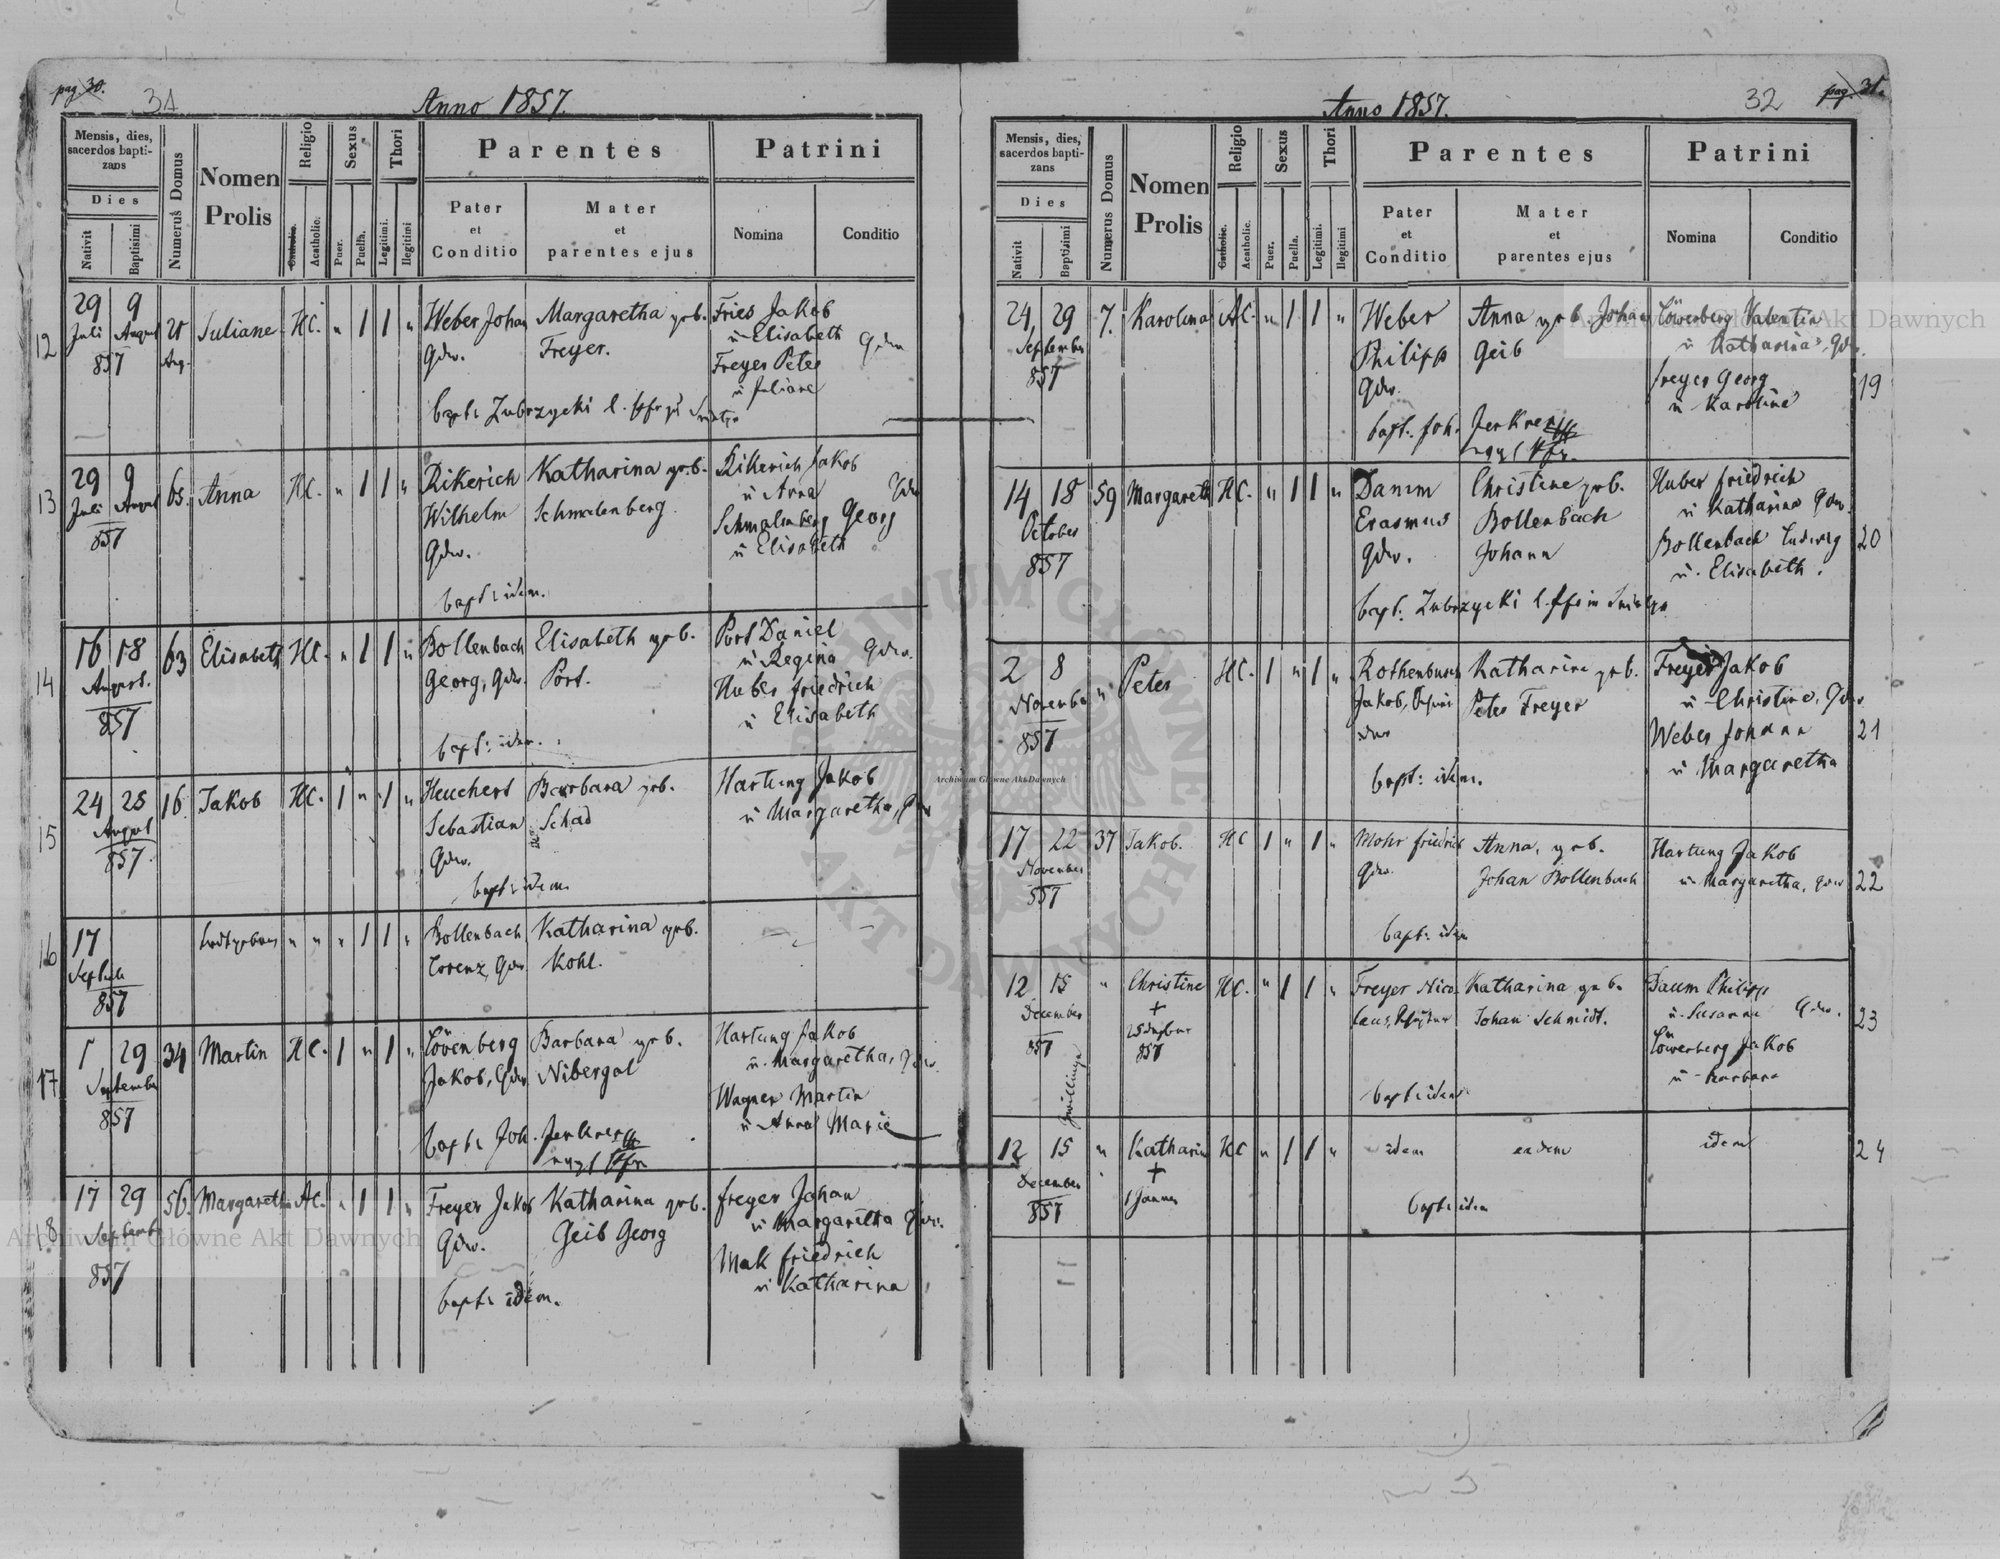 pag. 30.
31
Anno 1857.
Mensis, dies, sacerdos baptizans
Dies
Nativit
Baptisimi
Numerus Domus
Nomen Prolis
Religio
Catholic.
Acatholic.
Sexus
Puer.
Puella.
Thori
Legitimi.
Ilegitimi
Parentes
Pater et Conditio
Mater et parentes ejus
Patrini
Nomina
Conditio
12
29 9
Juli August
857
Juliane
HC. " 1 1 "
Weber Johan
Gdw.
Margaretha geb.
Freyer.
Fries Jakob
u Elisabeth Gdw
Freyer Peter
u Juliane
bapt: Zubrzycki
13
29 9
Juli August
857
65. Anna
HC. " 1 1 "
Rikerich
Wilhelm
Gdw.
Katharina geb.
Schmalenberg.
Rikerich Jakob
u Anna Gdw
Schmalenberg Georg
u Elisabeth
bapt: idem.
14
16 18
August.
857
63 Elisabeth
HC. " 1 1 "
Bollenbach
Georg, Gdw.
Elisabeth geb.
Port.
Port Daniel
u Regina Gdw.
Huber friedrich
u Elisabeth
bapt: idem.
15
24 25
August
857.
16. Jakob
HC. 1 " 1 "
Heuchert
Sebastian
Gdw.
Barbara geb.
Schad
Hartung Jakob
u Margaretha, Gdw
bapt: idem
16
17
Septbr
857
todtgeboren
" " " 1 1 "
Bollenbach
Lorenz, Gdw
Katharina geb.
Kohl.
17
1 29
September
857
34 Martin
HC. 1 " 1 "
Lövenberg
Jakob, Gdw
Barbara geb.
Nibergal
Hartung Jakob
u. Margaretha, Gdw.
Wagner Martin
u Anna Marie
bapt: Joh. Jenkner
18
17 29
Septemb
857
56. Margaretha
AC. " 1 1 "
Freyer Jakob
Gdw.
Katharina geb.
Geib Georg
freyer Johan
u Margaretha Gdw.
Mak friedrich
u Katharina
bapt: idem.
pag. 31.
32
Anno 1857.
Mensis, dies, sacerdos baptizans
Dies
Nativit
Baptisimi
Numerus Domus
Nomen Prolis
Religio
Catholic.
Acatholic.
Sexus
Puer.
Puella.
Thori
Legitimi.
Ilegitimi
Parentes
Pater et Conditio
Mater et parentes ejus
Patrini
Nomina
Conditio
24, 29
September
857
7. Karolina
AC. " 1 1 "
Weber
Philipp
Gdw.
Anna geb. Johan
Geib
Löwenberg Valentin
u Katharina, Gdw.
freyer Georg
u Karoline
19
bapt: Joh. Jenkner
14 18
October
857
59 Margareth
HC. " 1 1 "
Damm
Erasmus
Gdw.
Christine geb.
Bollenbach
Johann
Huber friedrich
u Katharina Gdw.
Bollenbach Ludwig
u. Elisabeth.
20
bapt: Zubrzycki
2 8
November
857
" Peter
HC. 1 " 1 "
Rothenbusch
Jakob,
Katharine geb.
Peter Freyer
Freyer Jakob
u Christine, Gdw
Weber Johann
u. Margaretha
21
bapt: idem.
17 22
November
857
37 Jakob.
HC 1 " 1 "
Mohr friedrich
Gdw.
Anna, geb.
Johan Bollenbach
Hartung Jakob
u Margaretha, Gdw
22
bapt: idem
12 15
December
857
" Christine
+
857
HC. " 1 1 "
Freyer Nico-
laus,
Katharina geb.
Johan Schmidt.
Daum Philipp
u. Susanna Gdw.
Löwenberg Jakob
u Barbara
23
bapt: idem
Zwillinge
12 15
December
857
" Katharin
+
1 Jänner
HC " 1 1 "
idem eadem idem
24
bapt: idem
Archiwum Główne Akt Dawnych
Archiwum Główne Akt Dawnych
Archiwum Główne Akt Dawnych
ARCHIWUM GŁÓWNE AKT DAWNYCH